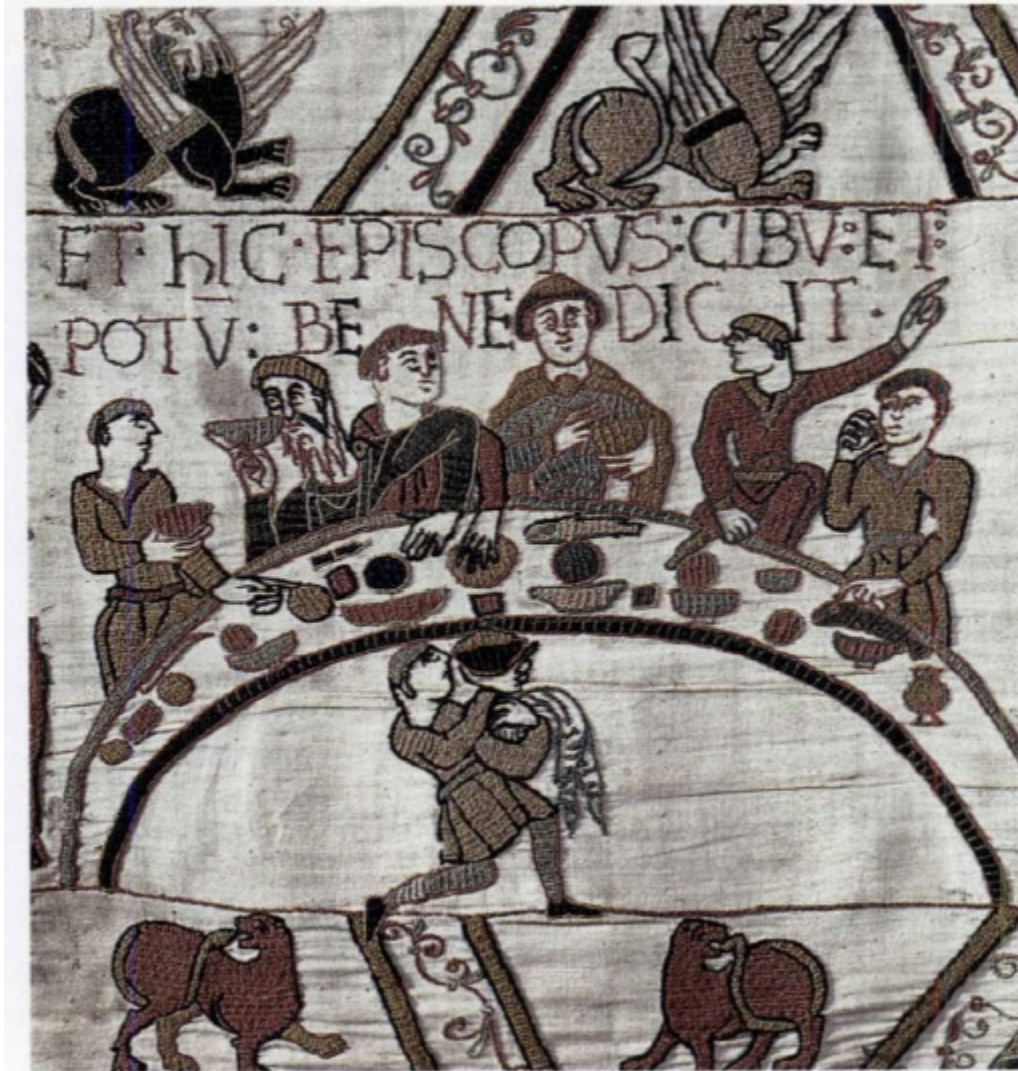 ET · hIC · EPISCOPVS : CIBV̅ : ET :
POTV̅ : BENEDICIT ·